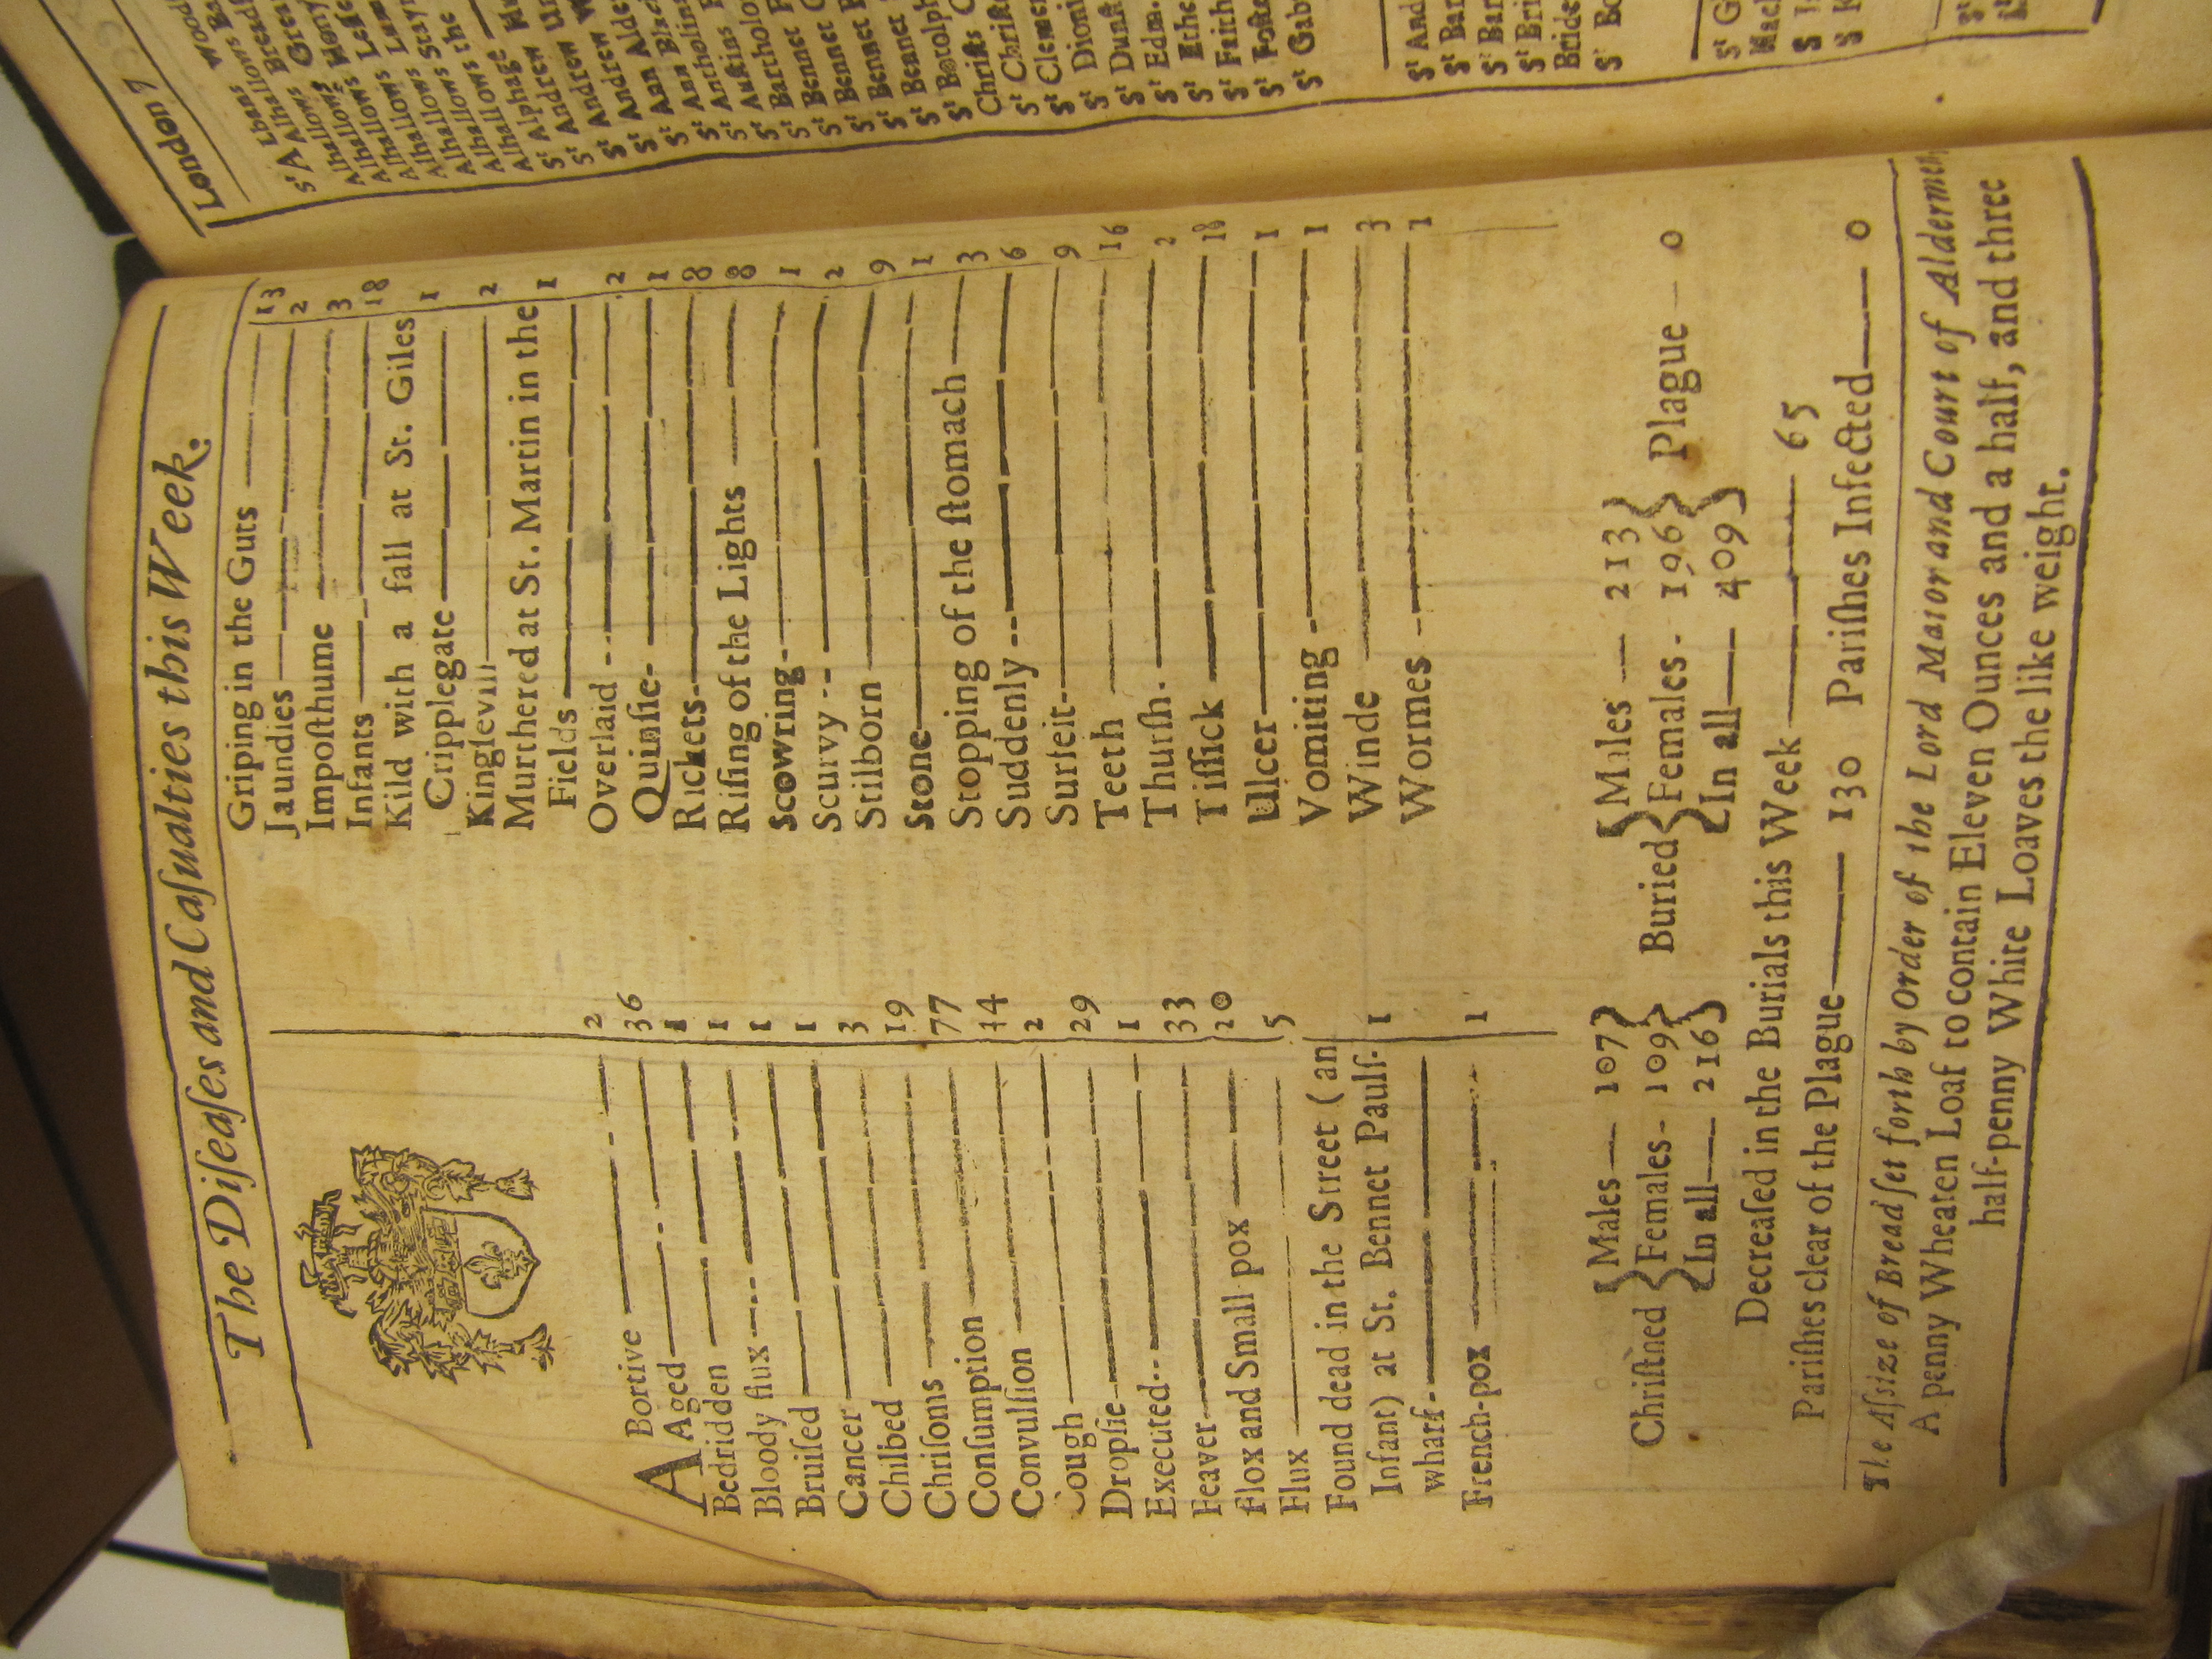 The Diſeaſes and Caſualties this Week.
ABortive — 2
Aged — 36
Bedridden — 1
Bloody flux — 1
Bruiſed — 1
Cancer — 1
Chilbed — 3
Chriſoms — 19
Conſumption — 77
Convulſion — 44
Cough — 2
Dropſie — 29
Executed — 1
Feaver — 33
Flox and Small pox — 20
Flux — 5
Found dead in the Street (an
Infant) at St. Bennet Paulſ-
wharf — 1
French-pox — 1
Griping in the Guts — 13
Jaundies — 2
Impoſthume — 3
Infants — 18
Kild with a fall at St. Giles
Cripplegate — 1
Kingſevill — 2
Murthered at St. Martin in the
Fields — 1
Overlaid — 2
Quinſie — 1
Rickets — 8
Riſing of the Lights — 8
Scowring — 1
Scurvy — 2
Stilborn — 9
Stone — 1
Stopping of the ſtomach — 3
Suddenly — 6
Surfeit — 9
Teeth — 16
Thurſh — 2
Tiſſick — 18
Ulcer — 1
Vomiting — 1
Winde — 3
Wormes — 1
Chriſtned { Males — 107 Females - 109 In all — 216 }
Buried { Males — 213 Females - 196 In all — 409 } Plague — 0
Decreaſed in the Burials this Week — 65
Pariſhes clear of the Plague — 130 Pariſhes Infected — 0
The Aſsize of Bread ſet forth by Order of the Lord Maior and Court of Aldermen,
A penny Wheaten Loaf to contain Eleven Ounces and a half, and three
half-penny White Loaves the like weight.
London 7
Alhallows
Alhallows
Alhallows
Alhallows
Alhallows the
Alhallows
Alphage
St Andrew
St Andrew
St Andrew
St Ann Alde
St Ann Blac
St Antholins
St Auſtins
St Bartholo
St Bennet
St Bennet
St Bennet
St Bennet
St Botolph
Chriſts
St Chriſt
St Clemen
St Dioni
St Dunſt
St Edm.
St Ethe
St Faith
St Foſte
St Gab
St And
St Bar
St Bar
St Bri
Bride
St Bo
St G